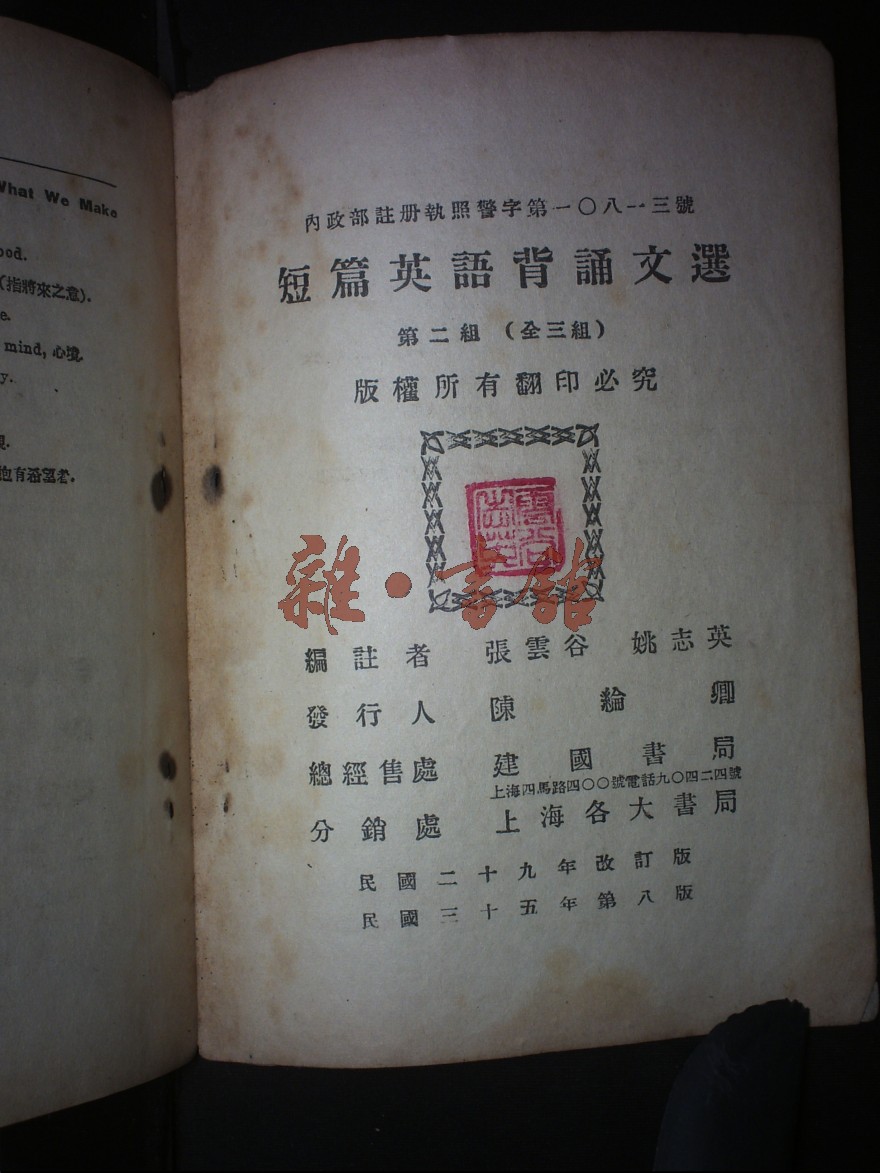 What We Make
ood.
(指將來之意).
e.
mind, 心境.
y.
抱有希望者.
內政部註册執照警字第一〇八一三號
短篇英語背誦文選
第二組（全三組）
版權所有翻印必究
雜·書館
編註者 張雲谷 姚志英
發行人 陳綸卿
總經售處 建國書局
上海四馬路四〇〇號電話九〇四二四號
分銷處 上海各大書局
民國二十九年改訂版
民國三十五年第八版